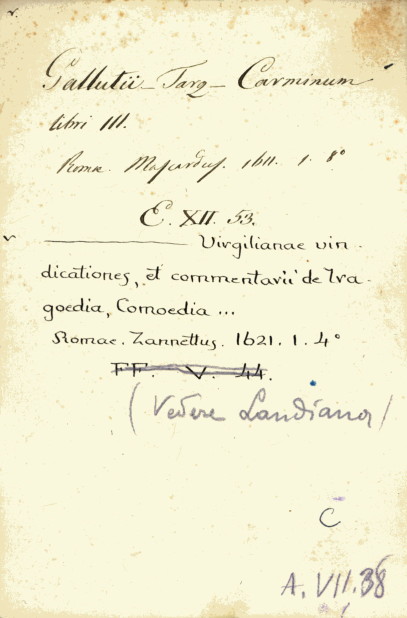 v.
Gallutii - Tarq - Carminum
libri III.
Romae. Mascardus. 1611. 1. 8°
E. XII. 53.
v ———— Virgilianae vin
dicationes, et commentarii de Tra-
goedia, Comoedia ...
Romae. Zannettus. 1621. 1. 4°
FF. V. 44.
(Vedere Landiana)
C
A. VII. 38